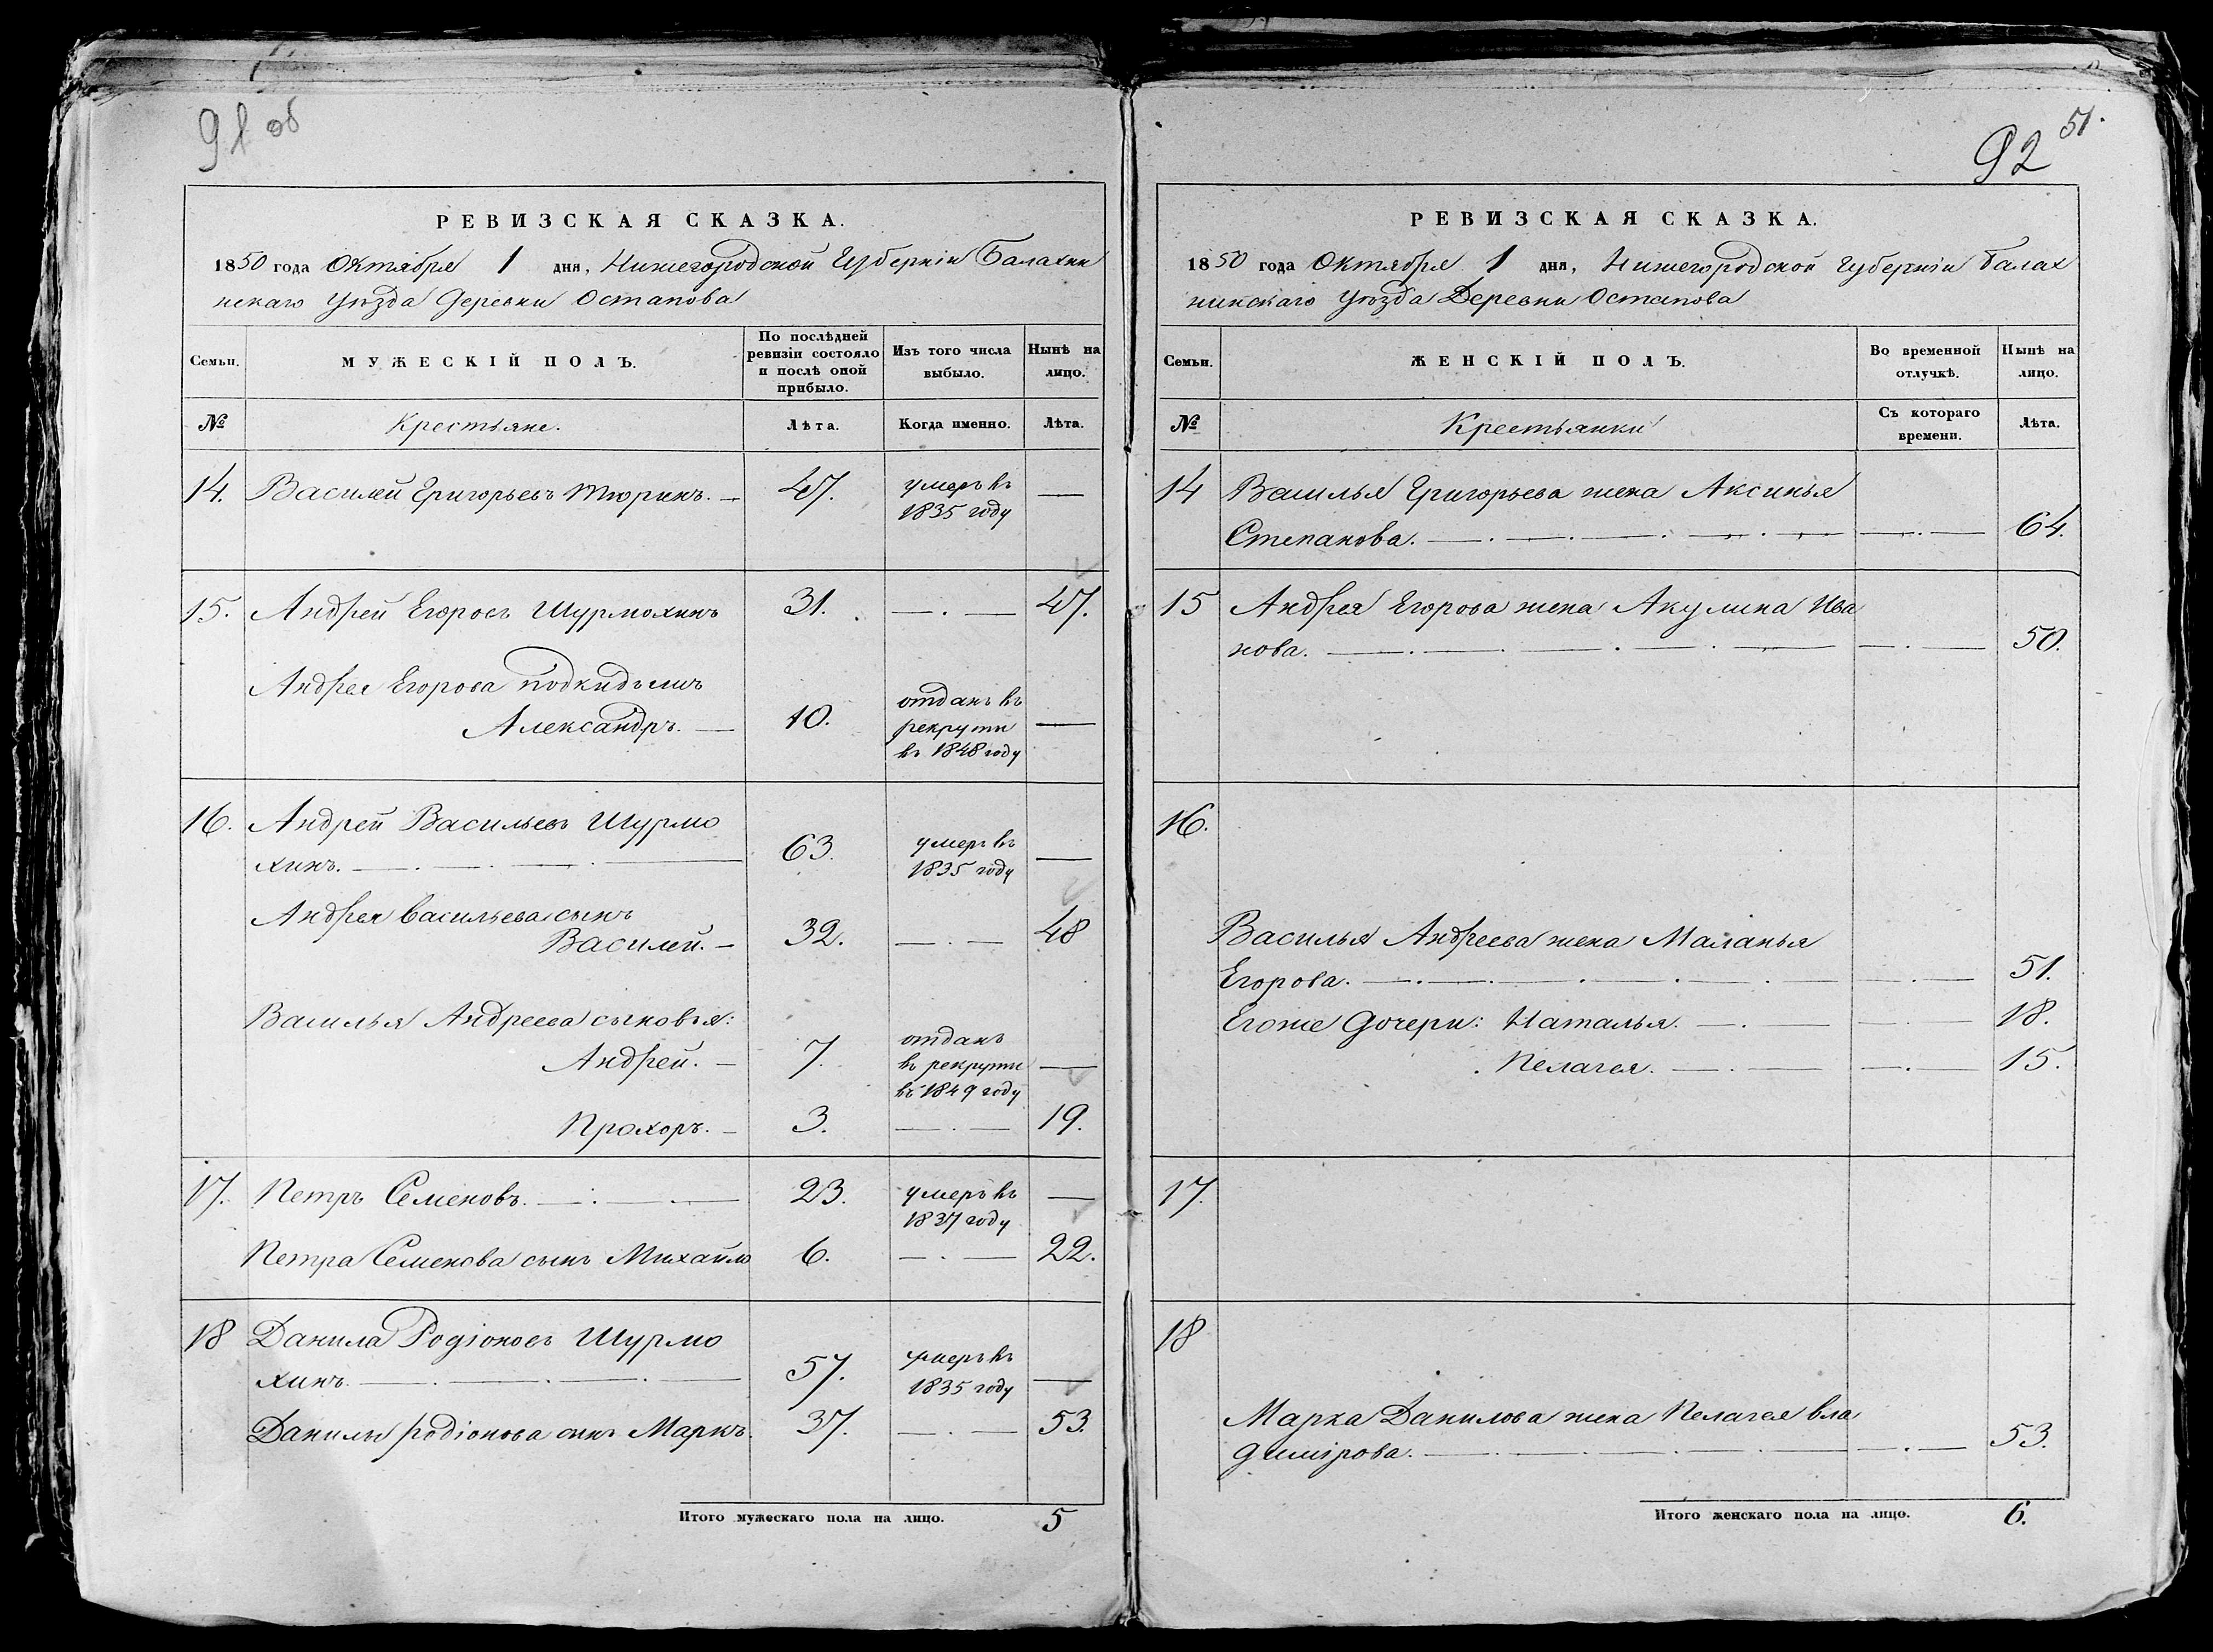 91 об
РЕВИЗСКАЯ СКАЗКА.
1850 года Октября 1 дня, Нижегородской Губерніи Балахни
нскаго уѣзда деревни Остапова
Семьи. МУЖЕСКІЙ ПОЛЪ. По послѣдней ревизіи состояло и послѣ оной прибыло. Изъ того числа выбыло. Нынѣ на лицо.
№ Крестьяне. Лѣта. Когда именно. Лѣта.
14. Василей Григорьевъ Тюринъ. — 47. умеръ въ 1835 году —
15. Андрей Егоровъ Шурмохинъ 31. — . — 47.
Андрея Егорова подкидышъ
Александръ. — 10. отданъ въ рекруты въ 1848 году —
16. Андрей Васильевъ Шурмо
хинъ. 63. умеръ въ 1835 году —
Андрея Васильева сынъ
Василей. — 32. — . — 48
Василья Андреева сыновья:
Андрей. — 7. отданъ въ рекруты въ 1849 году —
Прохоръ. — 3. — . — 19.
17. Петръ Семеновъ. 23. умеръ въ 1837 году —
Петра Семенова сынъ Михайло 6. — . — 22.
18 Данила Родіоновъ Шурмо
хинъ. 57. умеръ въ 1835 году —
Данилы Родіонова сынъ Маркъ. 37. — . — 53.
Итого мужескаго пола на лицо. 5
51.
92
РЕВИЗСКАЯ СКАЗКА.
1850 года Октября 1 дня, Нижегородской Губерніи Балах
нинскаго уѣзда Деревни Остапова
Семьи. ЖЕНСКІЙ ПОЛЪ. Во временной отлучкѣ. Нынѣ на лицо.
№ Крестьянки Съ котораго времени. Лѣта.
14 Василья Григорьева жена Аксинья
Степанова. — . — 64.
15 Андрея Егорова жена Акулина Ива
нова. — . — 50.
16.
Василья Андреева жена Маланья
Егорова. — . — 51.
Егоже дочери: Наталья. — . — 18.
Пелагея. — . — 15.
17.
18
Марка Данилова жена Пелагея Вла
димірова. — . — 53.
Итого женскаго пола на лицо. 6.